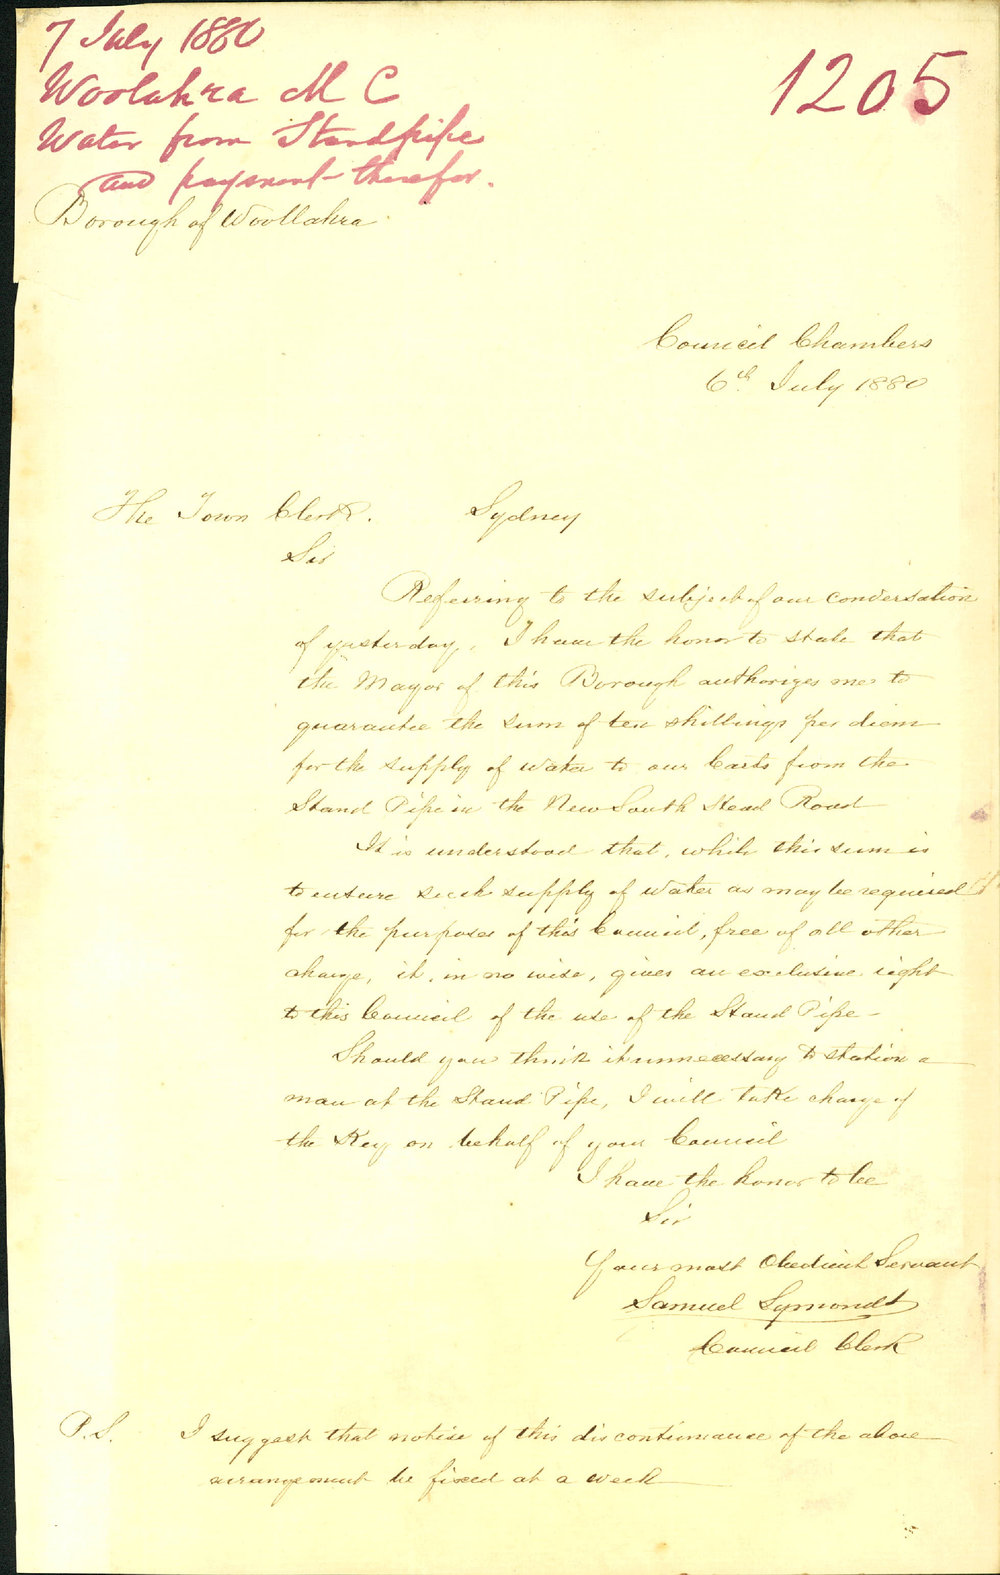 7 July 1880
Woolahra M C
Water from Standpipe
and payment therefor.
1205
Borough of Woollahra
Council Chambers
6th July 1880
The Town Clerk. Sydney
Sir
Referring to the subject of our conversation
of yesterday, I have the honor to state that
the Mayor of this Borough authorizes me to
guarantee the sum of ten shillings per diem
for the supply of water to our Carts from the
Stand Pipe in the New South Head Road
It is understood that, while this sum is
to ensure such supply of water as may be required
for the purposes of this Council, free of all other
charge, it, in no wise, gives an exclusive right
to this Council of the use of the Stand Pipe -
Should you think it unnecessary to station a
man at the Stand Pipe, I will take charge of
the Key on behalf of your Council
I have the honor to be
Sir
Your most Obedient Servant
Samuel Symonds
Council Clerk
P.S. I suggest that notice of this discontinuance of the above
arrangement be fixed at a week